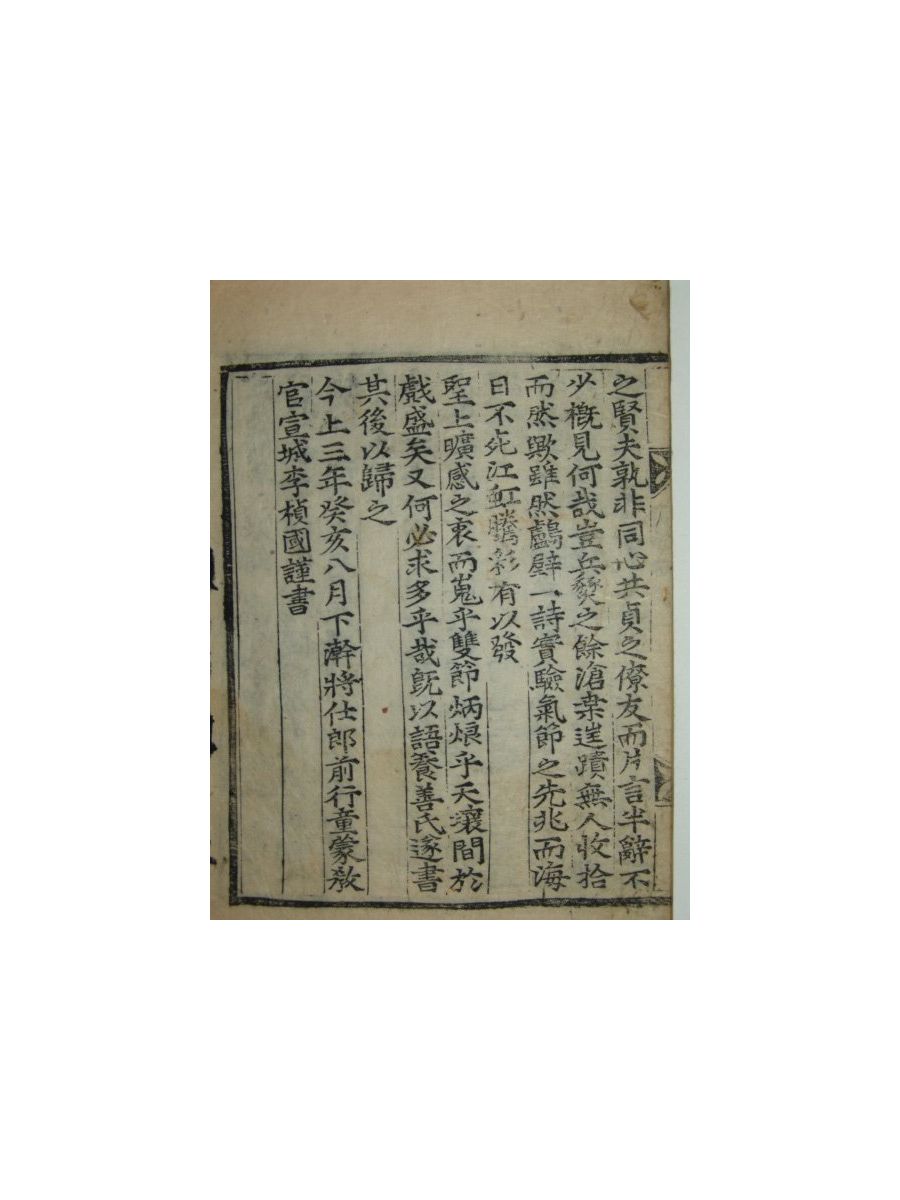 之賢夫孰非同心共貞之僚友而片言半辭不
少概見何哉豈兵燹之餘滄桒遺蹟無人收拾
而然歟雖然鸕壁一詩實驗氣節之先兆而海
日不死江虹騰彩有以發
聖上曠感之衷而嵬乎雙節炳烺乎天壤間於
戲盛矣又何必求多乎哉旣以語養善氏遂書
其後以歸之
今上三年癸亥八月下澣將仕郎前行童蒙敎
官宣城李楨國謹書